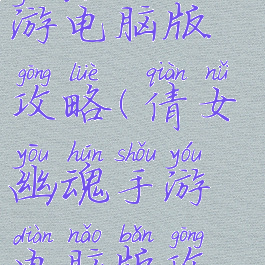 游电脑版
gōng lüè qiàn nǚ
攻略(倩女
yōu hún shǒu yóu
幽魂手游
diàn nǎo bǎn gōng
电脑版攻